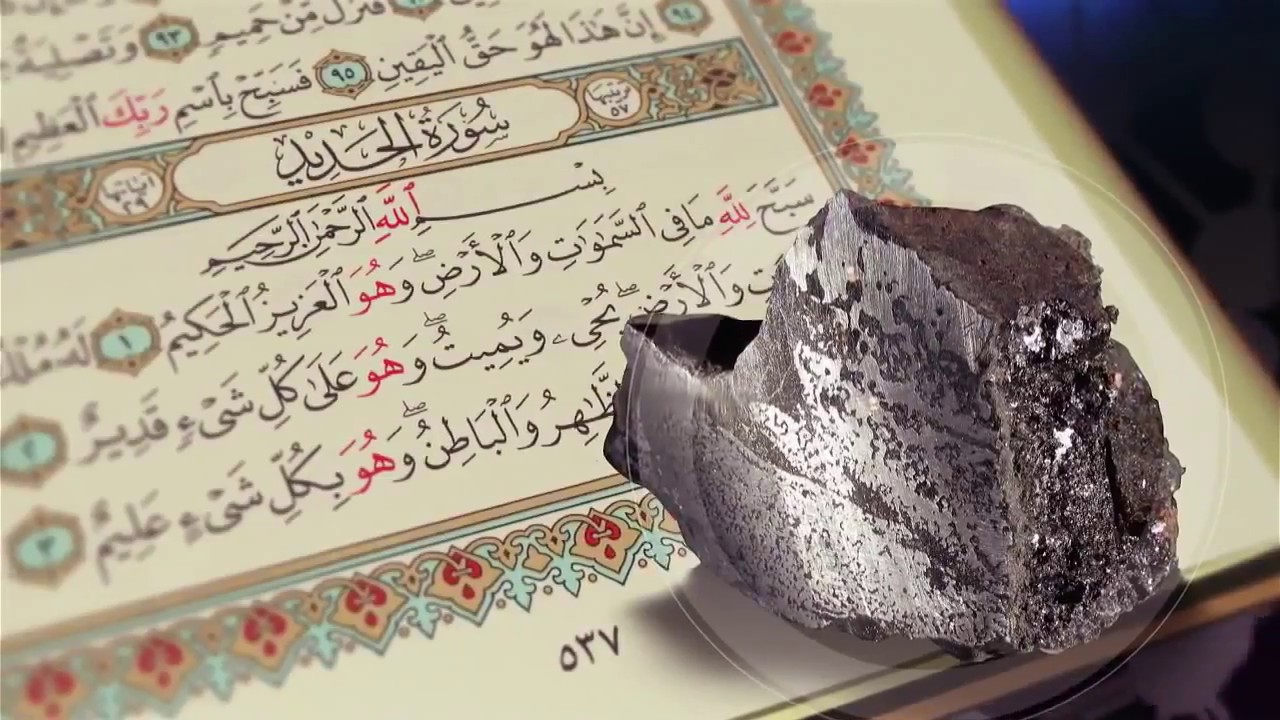 فَنُزُلٌ مِّنْ حَمِيمٍ ٩٣ وَتَصْلِيَةُ
٩٤ إِنَّ هَٰذَا لَهُوَ حَقُّ ٱلْيَقِينِ ٩٥ فَسَبِّحْ بِٱسْمِ رَبِّكَ ٱلْعَظِيمِ
ترتيبها ٥٧ سُورَةُ الحَدِيدِ آياتها ٢٩
بِسْمِ ٱللَّهِ ٱلرَّحْمَٰنِ ٱلرَّحِيمِ
سَبَّحَ لِلَّهِ مَا فِى ٱلسَّمَٰوَٰتِ وَٱلْأَرْضِ ۖ وَهُوَ ٱلْعَزِيزُ ٱلْحَكِيمُ ١ لَهُۥ مُلْكُ
وَٱلْأَرْضِ ۖ يُحْىِۦ وَيُمِيتُ ۖ وَهُوَ عَلَىٰ كُلِّ شَىْءٍ قَدِيرٌ ٢
وَٱلْبَاطِنُ ۖ وَهُوَ بِكُلِّ شَىْءٍ عَلِيمٌ ٣
٥٣٧